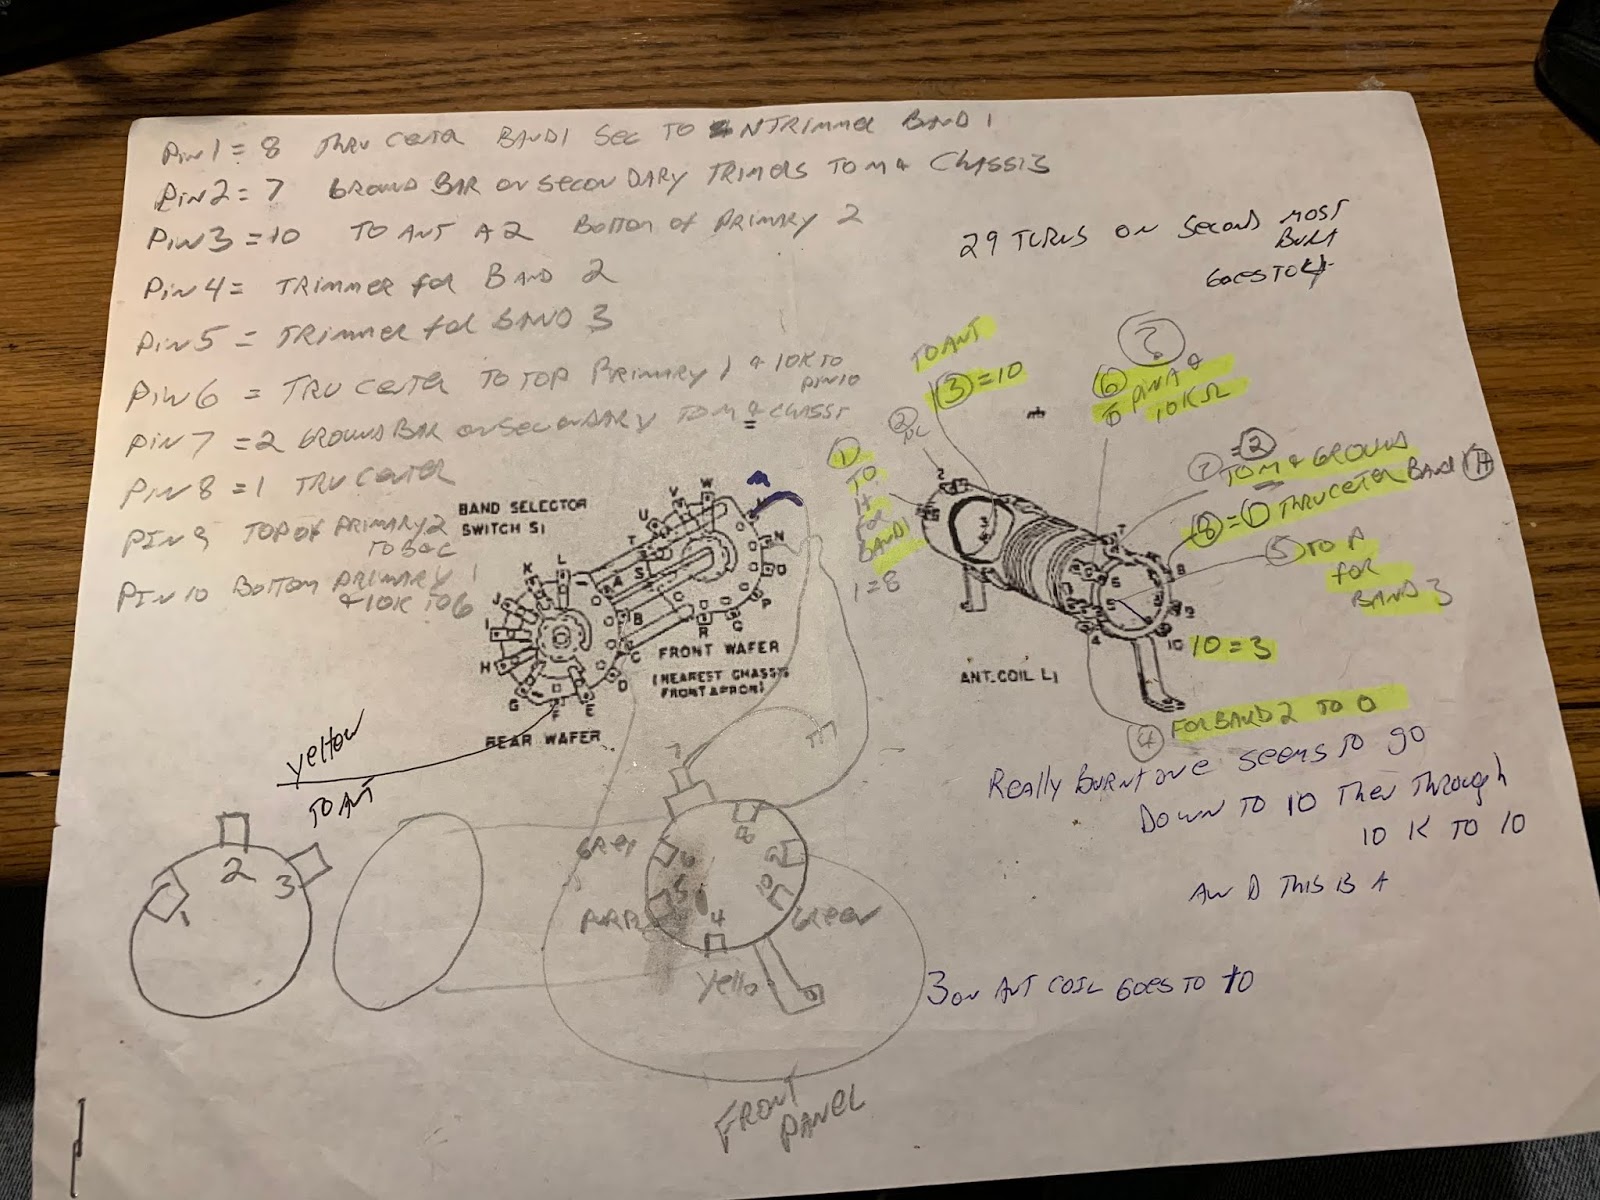 Pin 1 = 8 THRU CENTER BAND1 SEC TO N TRIMMER BAND 1
Pin 2 = 7 GROUND BAR ON SECONDARY TRIMERS TO M & CHASSIS
Pin 3 = 10 TO ANT A2 BOTTOM OF PRIMARY 2
Pin 4 = TRIMMER for BAND 2
Pin 5 = TRIMMER for BAND 3
Pin 6 = TRU CENTER TO TOP PRIMARY 1 & 10K TO
PIN 10
Pin 7 = 2 GROUND BAR ON SECONDARY TO M & CHASSI
Pin 8 = 1 TRU CENTER
PIN 9 TOP OF PRIMARY 2
TO B & C
PIN 10 BOTTOM PRIMARY 1
& 10K TO 6
29 TURNS ON SECOND MOST
BURNT
GOES TO 4
TO ANT
3 = 10
2
NC
1
TO
H
FOR
BAND 1
1 = 8
?
6
TO PIN A &
10KΩ
7 = 2
TO M & GROUND
8 = 1 THRU CENTER BAND 1 H
5 TO P
for
BAND 3
10 = 3
4 FOR BAND 2 TO O
BAND SELECTOR
SWITCH S1
W
V
U
T
S
A
B
C
D
E
F
G
H
I
J
K
L
N
O
P
Q
R
FRONT WAFER
(NEAREST CHASSIS
FRONT APRON)
REAR WAFER
ANT. COIL L1
yellow
TO ANT
Really BURNT ONE seems TO go
DOWN TO 10 THEN THROUGH
10 K TO 10
AND THIS IS A
3 ON ANT COIL GOES TO 10
1
2
3
7
8
GREY
6
9
5
10
PURP
4
GREEN
Yello
FRONT
PANEL